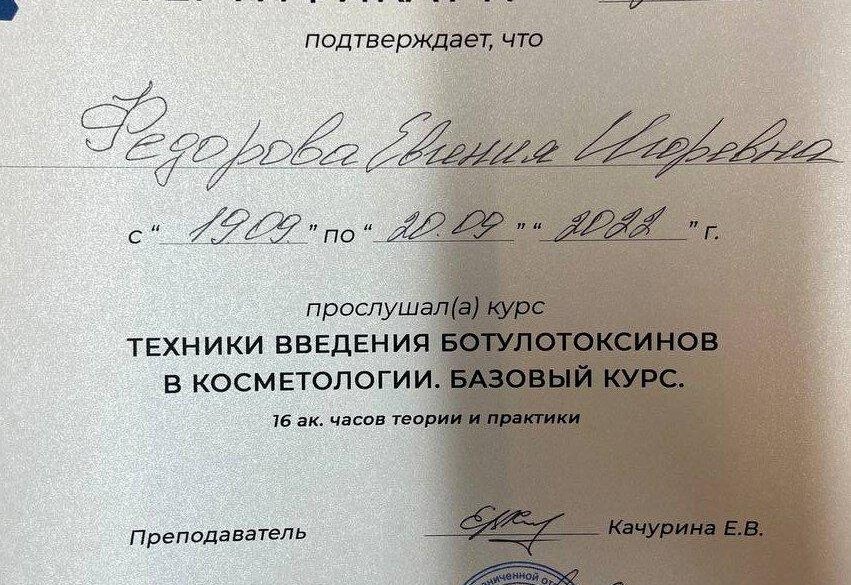 подтверждает, что
Федорова Евгения Игоревна
с “ 19.09. ” по “ 20.09 ” “ 2022 ” г.
прослушал(а) курс
ТЕХНИКИ ВВЕДЕНИЯ БОТУЛОТОКСИНОВ
В КОСМЕТОЛОГИИ. БАЗОВЫЙ КУРС.
16 ак. часов теории и практики
Преподаватель Качурина Е.В.